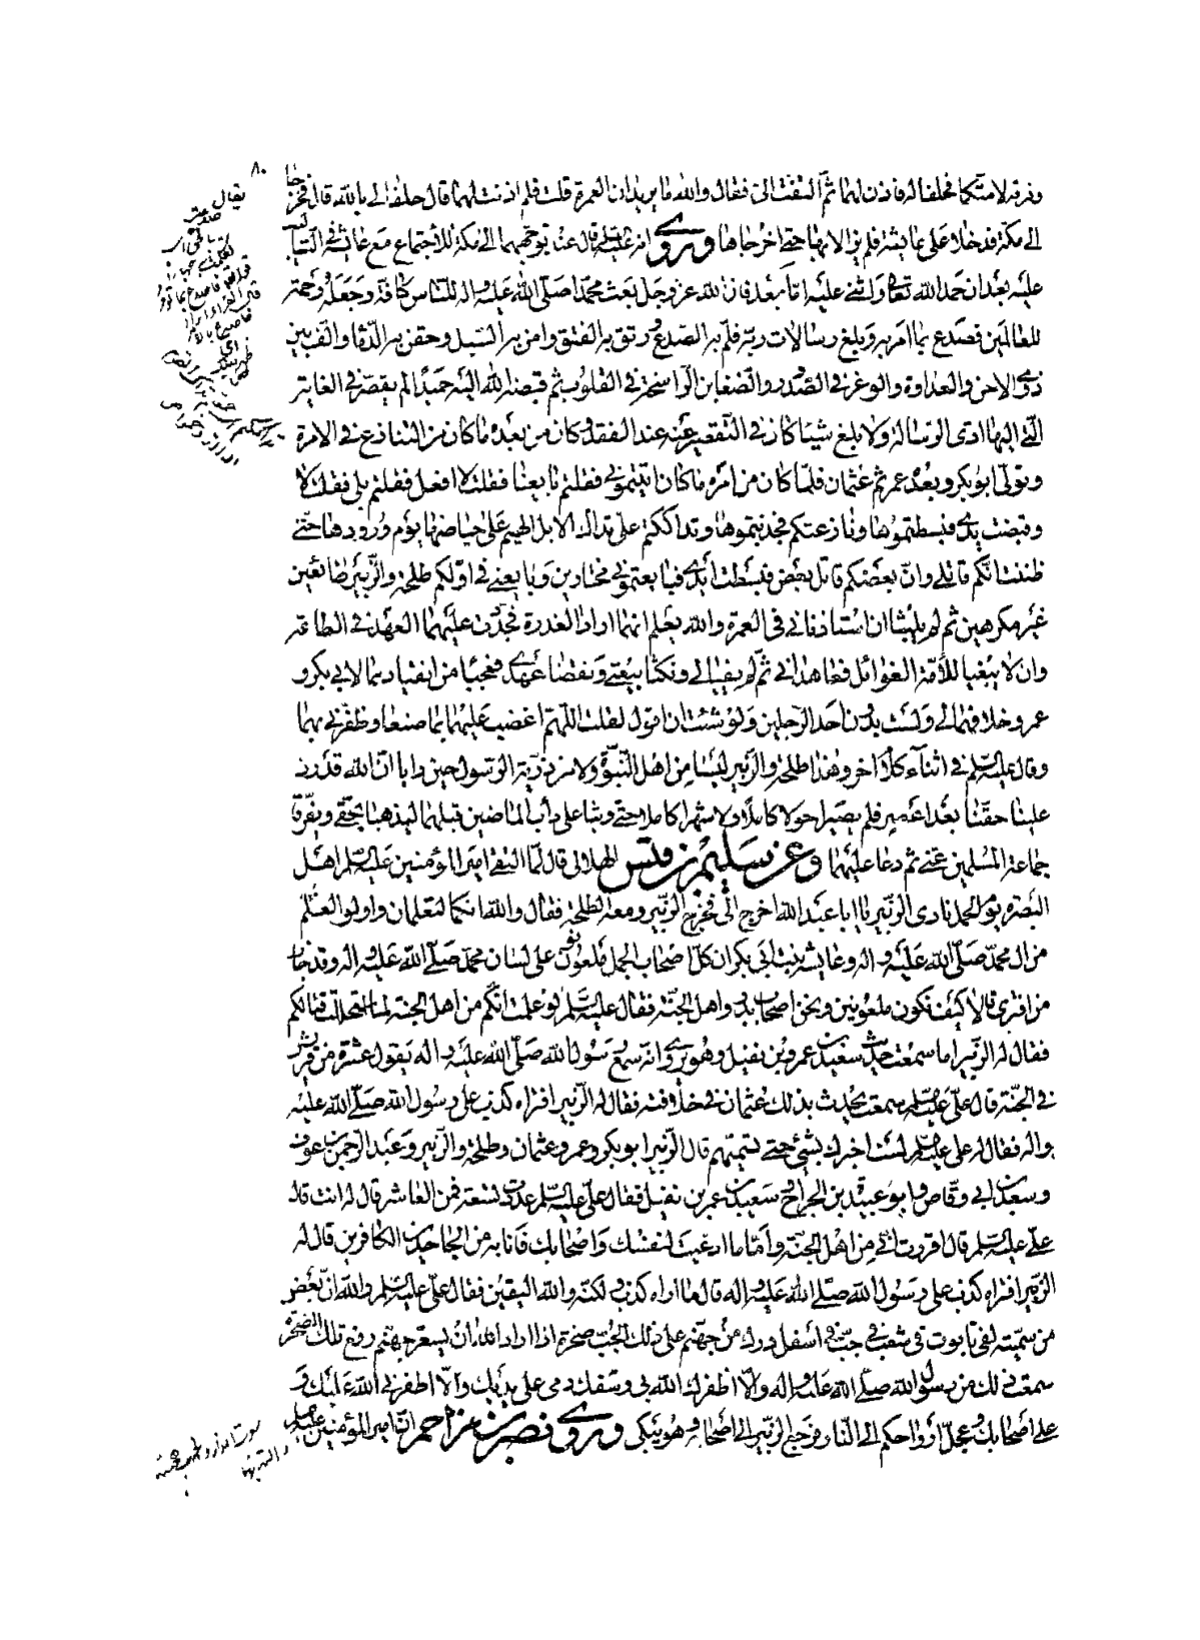 وفرقة لامتكما فحلفا له فاذن لهما ثم التفت الى فقال والله ما يريدان العمرة قلت فلم اذنت لهما قال حلفا لي بالله قال فخرجا
الى مكة فدخلا على عايشة فلم يزالا بها حتى اخرجاها وروى انه عليه السلم قال عند توجههما الى مكة للاجتماع مع عائشة في التاليب
عليه بعد ان حمد الله تعالى واثنى عليه اما بعد فان الله عز وجل بعث محمدا صلى الله عليه واله للناس كافة وجعله رحمة
للعالمين فصدع بما امر به وبلغ رسالات ربه فلم به الصدع ورتق به الفتق وامن به السبيل وحقن به الدماء والف بين
ذوى الاحن والعداوة والوغر في الصدور والضغاين الراسخة في القلوب ثم قبضه الله اليه حميدا لم يقصر في الغاية
التي اليها ادى الرسالة ولا بلغ شيئا كان في التقصير عنه عند الفقد وكان من بعده ما كان من التنازع في الامرة
وتولى ابو بكر وبعده عمر ثم عثمان فلما كان من امره ما كان اتيتموني فقلتم بايعنا فقلت لا افعل فقلتم بلى فقلت لا
وقبضت يدي فبسطتموها ونازعتكم فجذبتموها وتداككتم على تداك الابل الهيم على حياضها يوم ورودها حتى
ظننت انكم قاتلي وان بعضكم قاتل بعض فبسطت يدي فبايعتموني مختارين وبايعني في اولكم طلحة والزبير طائعين
غير مكرهين ثم لم يلبثا ان استاذناني في العمرة والله يعلم انهما ارادا الغدرة فجددت عليهما العهد في الطاعة
وان لا يبغيا للامة الغوائل فعاهداني ثم لم يفيا لي ونكثا بيعتي ونقضا عهدي فعجبا من انقيادهما لابي بكر و
عمر وخلافهما لي ولست بدون احد الرجلين ولو شئت ان اقول لقلت اللهم اغضب عليهما بما صنعا وظفرني بهما
وقال عليه السلم في اثناء كلام اخر وهذا طلحة والزبير ليسا من اهل النبوة ولا من ذرية الرسول حين رايا ان الله قد رد
علينا حقنا بعد اعصير فلم يصبرا حولا كاملا ولا شهرا كاملا حتى وثبا على داب الماضين قبلهما ليذهبا بحقي ويفرقا
جماعة المسلمين عني ثم دعا عليهما وعن سليم بن قيس الهلالي قال لما التقى امير المؤمنين عليه السلم اهل
البصرة يوم الجمل نادى الزبير يا ابا عبد الله اخرج الي فخرج الزبير ومعه طلحة فقال والله انكما لتعلمان واولو العلم
من ال محمد صلى الله عليه واله وعايشة بنت ابي بكر ان كل اصحاب الجمل ملعونون على لسان محمد صلى الله عليه واله وقد خاب
من افترى قالا كيف نكون ملعونين ونحن اصحاب بدر واهل الجنة فقال عليه السلم لو علمت انكم من اهل الجنة لما استحللت قتالكم
فقال له الزبير اما سمعت حديث سعيد بن عمرو بن نفيل وهو يروى انه سمع رسول الله صلى الله عليه واله يقول عشرة من قريش
في الجنة قال علي عليه السلم سمعته يحدث بذلك عثمان في خلافته فقال له الزبير افتراه كذب على رسول الله صلى الله عليه
واله فقال له علي عليه السلم لست اخبرك بشئ حتى تسميهم قال الزبير ابو بكر وعمر وعثمان وطلحة والزبير وعبد الرحمن بن عوف
وسعد بن ابي وقاص وابو عبيدة بن الجراح وسعيد بن عمر بن نفيل فقال علي عليه السلم عددت تسعة فمن العاشر قال له انت قال
علي عليه السلم قال اقررت اني من اهل الجنة واما ما ادعيت لنفسك واصحابك فانا به من الجاحدين الكافرين قال له
الزبير افتراه كذب على رسول الله صلى الله عليه واله قال ما اراه كذب ولكنه والله اليقين فقال علي عليه السلم والله ان بعض
من سميته لفي تابوت في شعب في جب في اسفل درك من جهنم على ذلك الجب صخرة اذا اراد الله ان يسعر جهنم رفع تلك الصخرة
سمعت ذلك من رسول الله صلى الله عليه واله والا اظفرك الله بي وسفك دمي على يديك والا اظفرني الله عليك و
على اصحابك وعجل ارواحكم الى النار فرجع الزبير الى اصحابه وهو يبكي وروى نصر بن مزاحم ان امير المؤمنين عليه السلم
٨٠
يقال